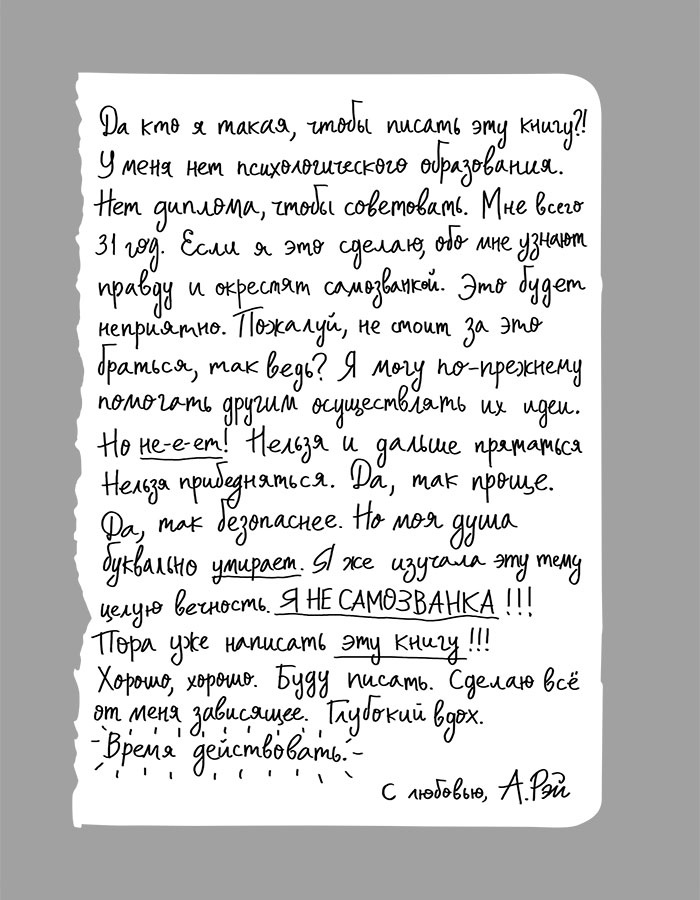 Да кто я такая, чтобы писать эту книгу?!
У меня нет психологического образования.
Нет диплома, чтобы советовать. Мне всего
31 год. Если я это сделаю, обо мне узнают
правду и окрестят самозванкой. Это будет
неприятно. Пожалуй, не стоит за это
браться, так ведь? Я могу по-прежнему
помогать другим осуществлять их идеи.
Но не-е-ет! Нельзя и дальше прятаться
Нельзя прибедняться. Да, так проще.
Да, так безопаснее. Но моя душа
буквально умирает. Я же изучала эту тему
целую вечность. Я НЕ САМОЗВАНКА !!!
Пора уже написать эту книгу !!!
Хорошо, хорошо. Буду писать. Сделаю всё
от меня зависящее. Глубокий вдох.
Время действовать.
С любовью, А.Рэй